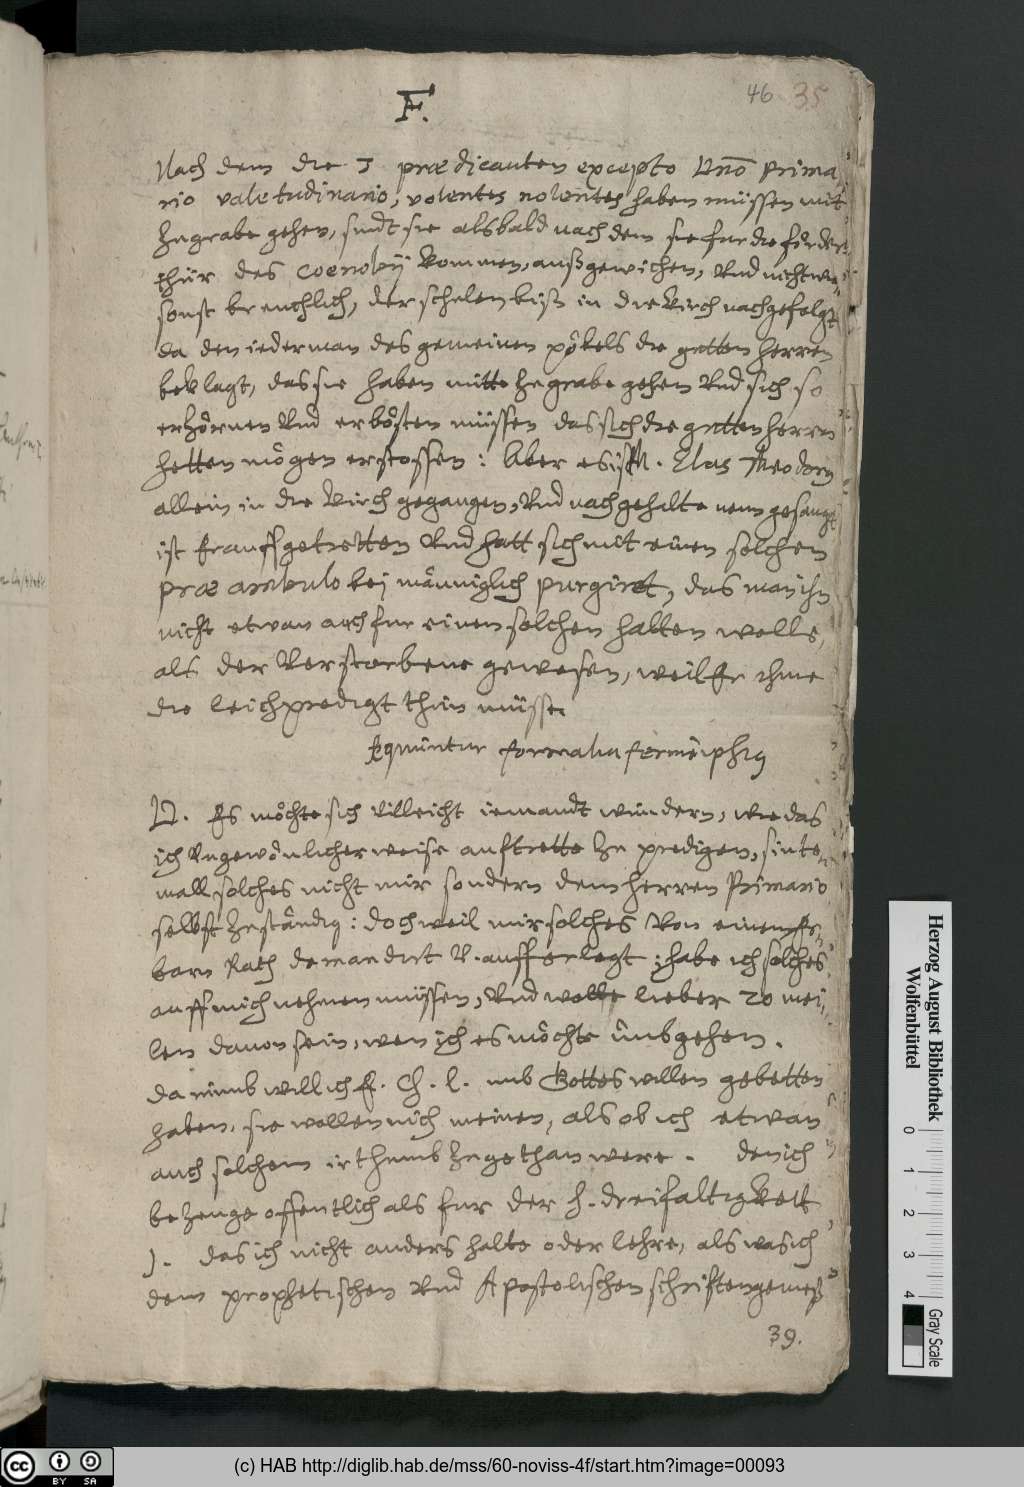 46 35
F.
Nach dem die 3 prædicanten excepto Vno Prima
rio valetudinario, volentes nolentes haben müssen mit
zugrabe gehen, sindt sie alsbald nach dem sie fur die förder
thür des Coenobÿ kommen, außgewichen, Vnd nicht wie
sonst breuchlich, der schulen biß in die Kirch nachgefolgt
da den iederman des gemeinen pöbels die gutten herren
beklagt, das sie haben mitte zugrabe gehen Vnd sich so
erzörnen Vnd erbösten müssen das sich die gutten herren
hetten mögen erstossen: Aber es ist M. Elas Theodorus
allein in die Kirch gegangen, Vnd nach gehaltenem gesange
ist herauffgetretten Vnd hatt sich mit einen solchen
præambulo bei männiglich purgiret, das man ihn
nicht etwan auch fur einen solchen halten wolle,
als der Verstorbene gewesen, weil Er ihme
die leichpredigt thun müsse
Sequuntur formalia
D. Es möchte sich villeicht iemandt wundern, wie das
ich Vngewönlicher weise aufftrette zu predigen, sinte
mall solches nicht mir sondern dem herren Primario
selbst zuständig: doch weil mir solches Von einem Er
barn Rath demandirt V. aufferlegt; habe ich solches
auff mich nehmen müssen, Vnd wolte lieber 20 mei
len dauon sein, wen ich es möchte ümbgehen.
Darumb will ich E. Ch. L. umb Gottes willen gebetten
haben, sie wollen nich meinen, als ob ich etwan
auch solchem irthumb zugethan were. den ich
bezeuge offentlich als fur der h. dreifaltigkeitt
). das ich nicht anders halte oder lehre, als was ich
dem prophetischen Vnd Apostolischen schrifften gemeß
39.
Herzog August Bibliothek
Wolfenbüttel
0 1 2 3 4
Gray Scale
cc BY SA
(c) HAB http://diglib.hab.de/mss/60-noviss-4f/start.htm?image=00093